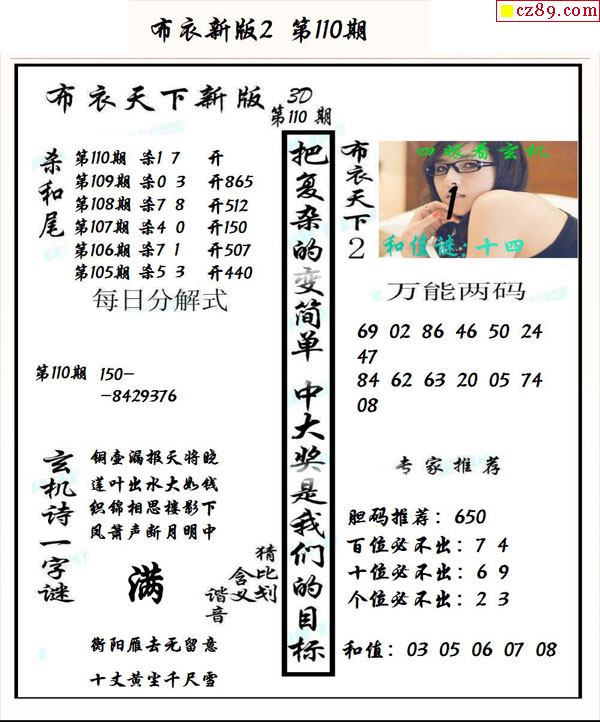 cz89.com
布衣新版2 第110期
布衣天下新版 3D
第110 期
杀和尾
第110期 杀1 7 开
第109期 杀0 3 开865
第108期 杀7 8 开512
第107期 杀4 0 开150
第106期 杀7 1 开507
第105期 杀5 3 开440
每日分解式
第110期 150-
-8429376
玄机诗一字谜
铜壶漏报天将晓
莲叶出水大如钱
织锦相思楼影下
风箫声断月明中
满
猜比划
含义
谐音
衡阳雁去无留意
十丈黄尘千尺雪
把复杂的变简单 中大奖是我们的目标
布衣天下2
四眼看玄机
1
和值谜:十四
万能两码
69 02 86 46 50 24
47
84 62 63 20 05 74
08
专家推荐
胆码推荐：650
百位必不出：7 4
十位必不出：6 9
个位必不出：2 3
和值：03 05 06 07 08